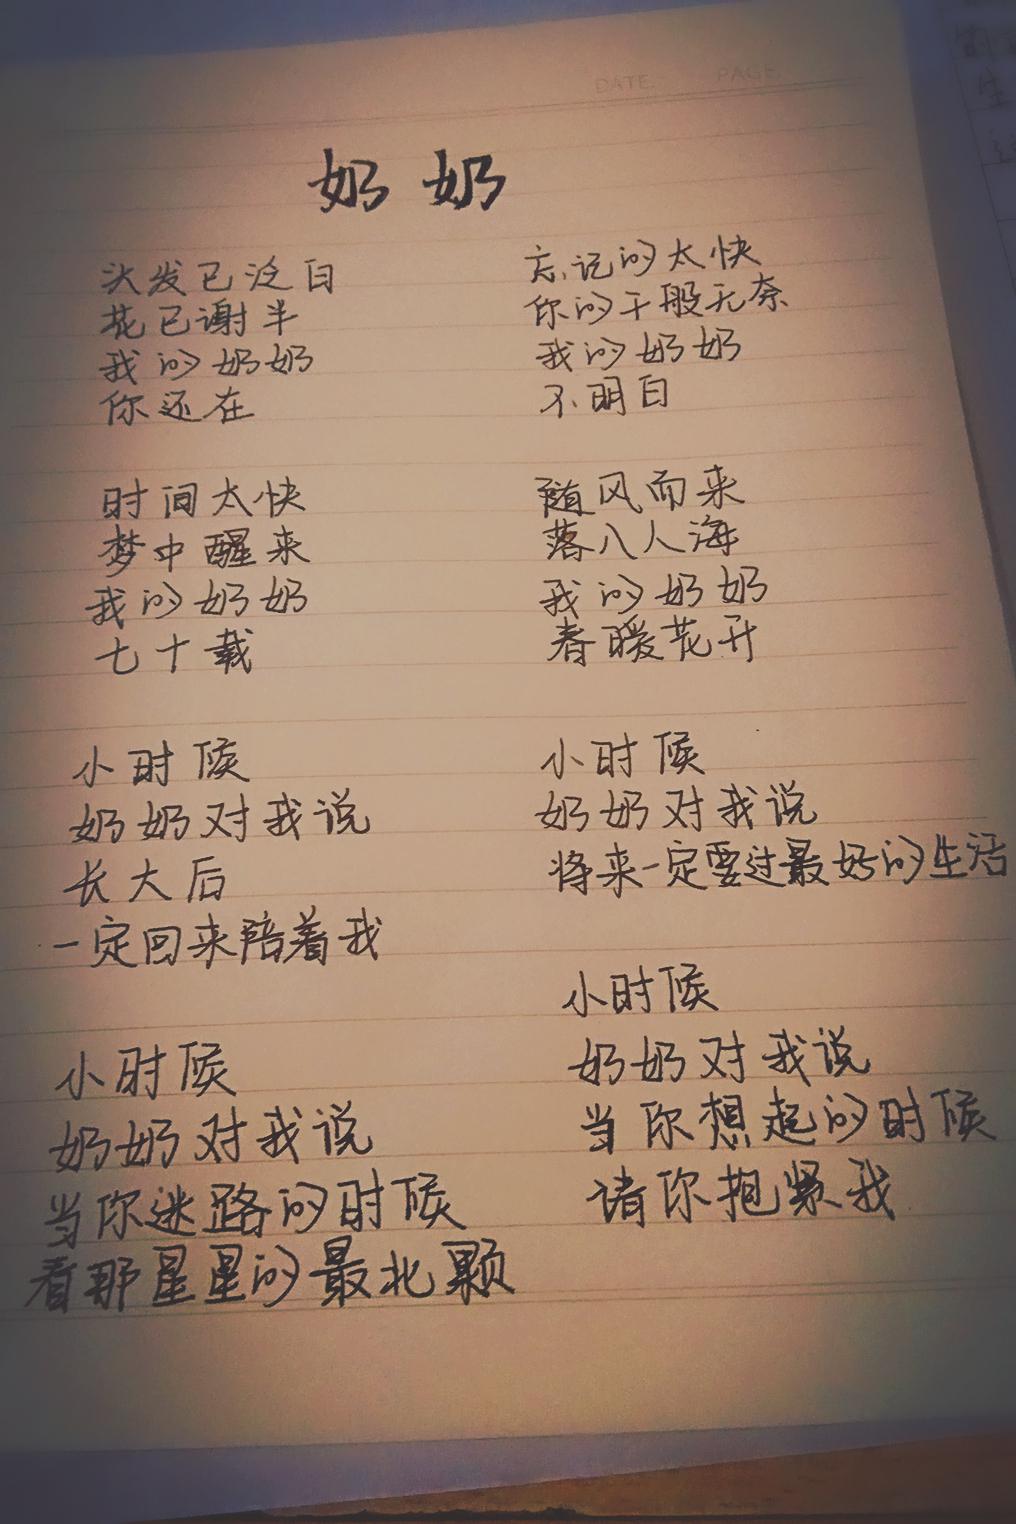 DATE. PAGE.
奶奶
头发已泛白
花已谢半
我的奶奶
你还在
时间太快
梦中醒来
我的奶奶
七十载
小时候
奶奶对我说
长大后
一定回来陪着我
小时候
奶奶对我说
当你迷路的时候
看那星星的最北颗
忘记的太快
你的千般无奈
我的奶奶
不明白
随风而来
落入人海
我的奶奶
春暖花开
小时候
奶奶对我说
将来一定要过最好的生活
小时候
奶奶对我说
当你想起的时候
请你抱紧我